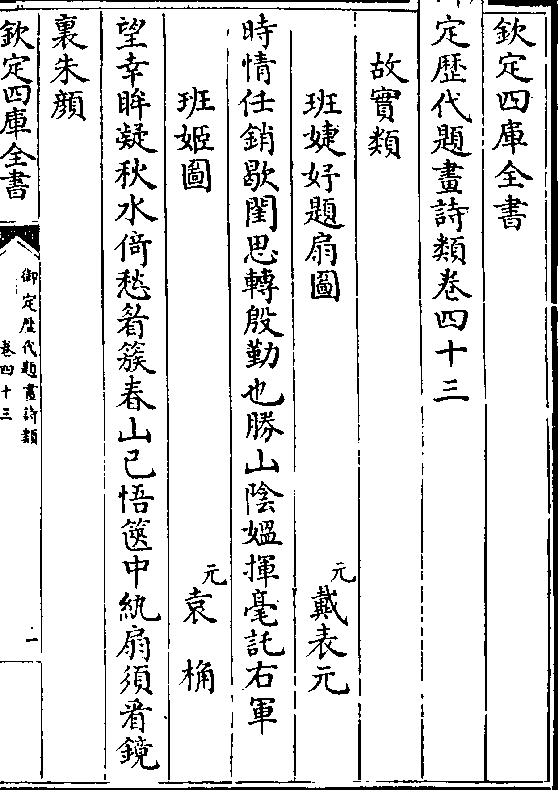 欽定四庫全書
定歴代題畫詩類卷四十三
故實類
班婕妤題扇圖 元 戴表元
時情任銷歇閨思轉殷勤也勝山陰媪揮毫託右軍
班姬圖 元 袁桷
望幸眸凝秋水倚愁眉簇春山已悟篋中紈扇須看鏡
裏朱顔
欽定四庫全書
御定歴代題畫詩類
卷四十三
一